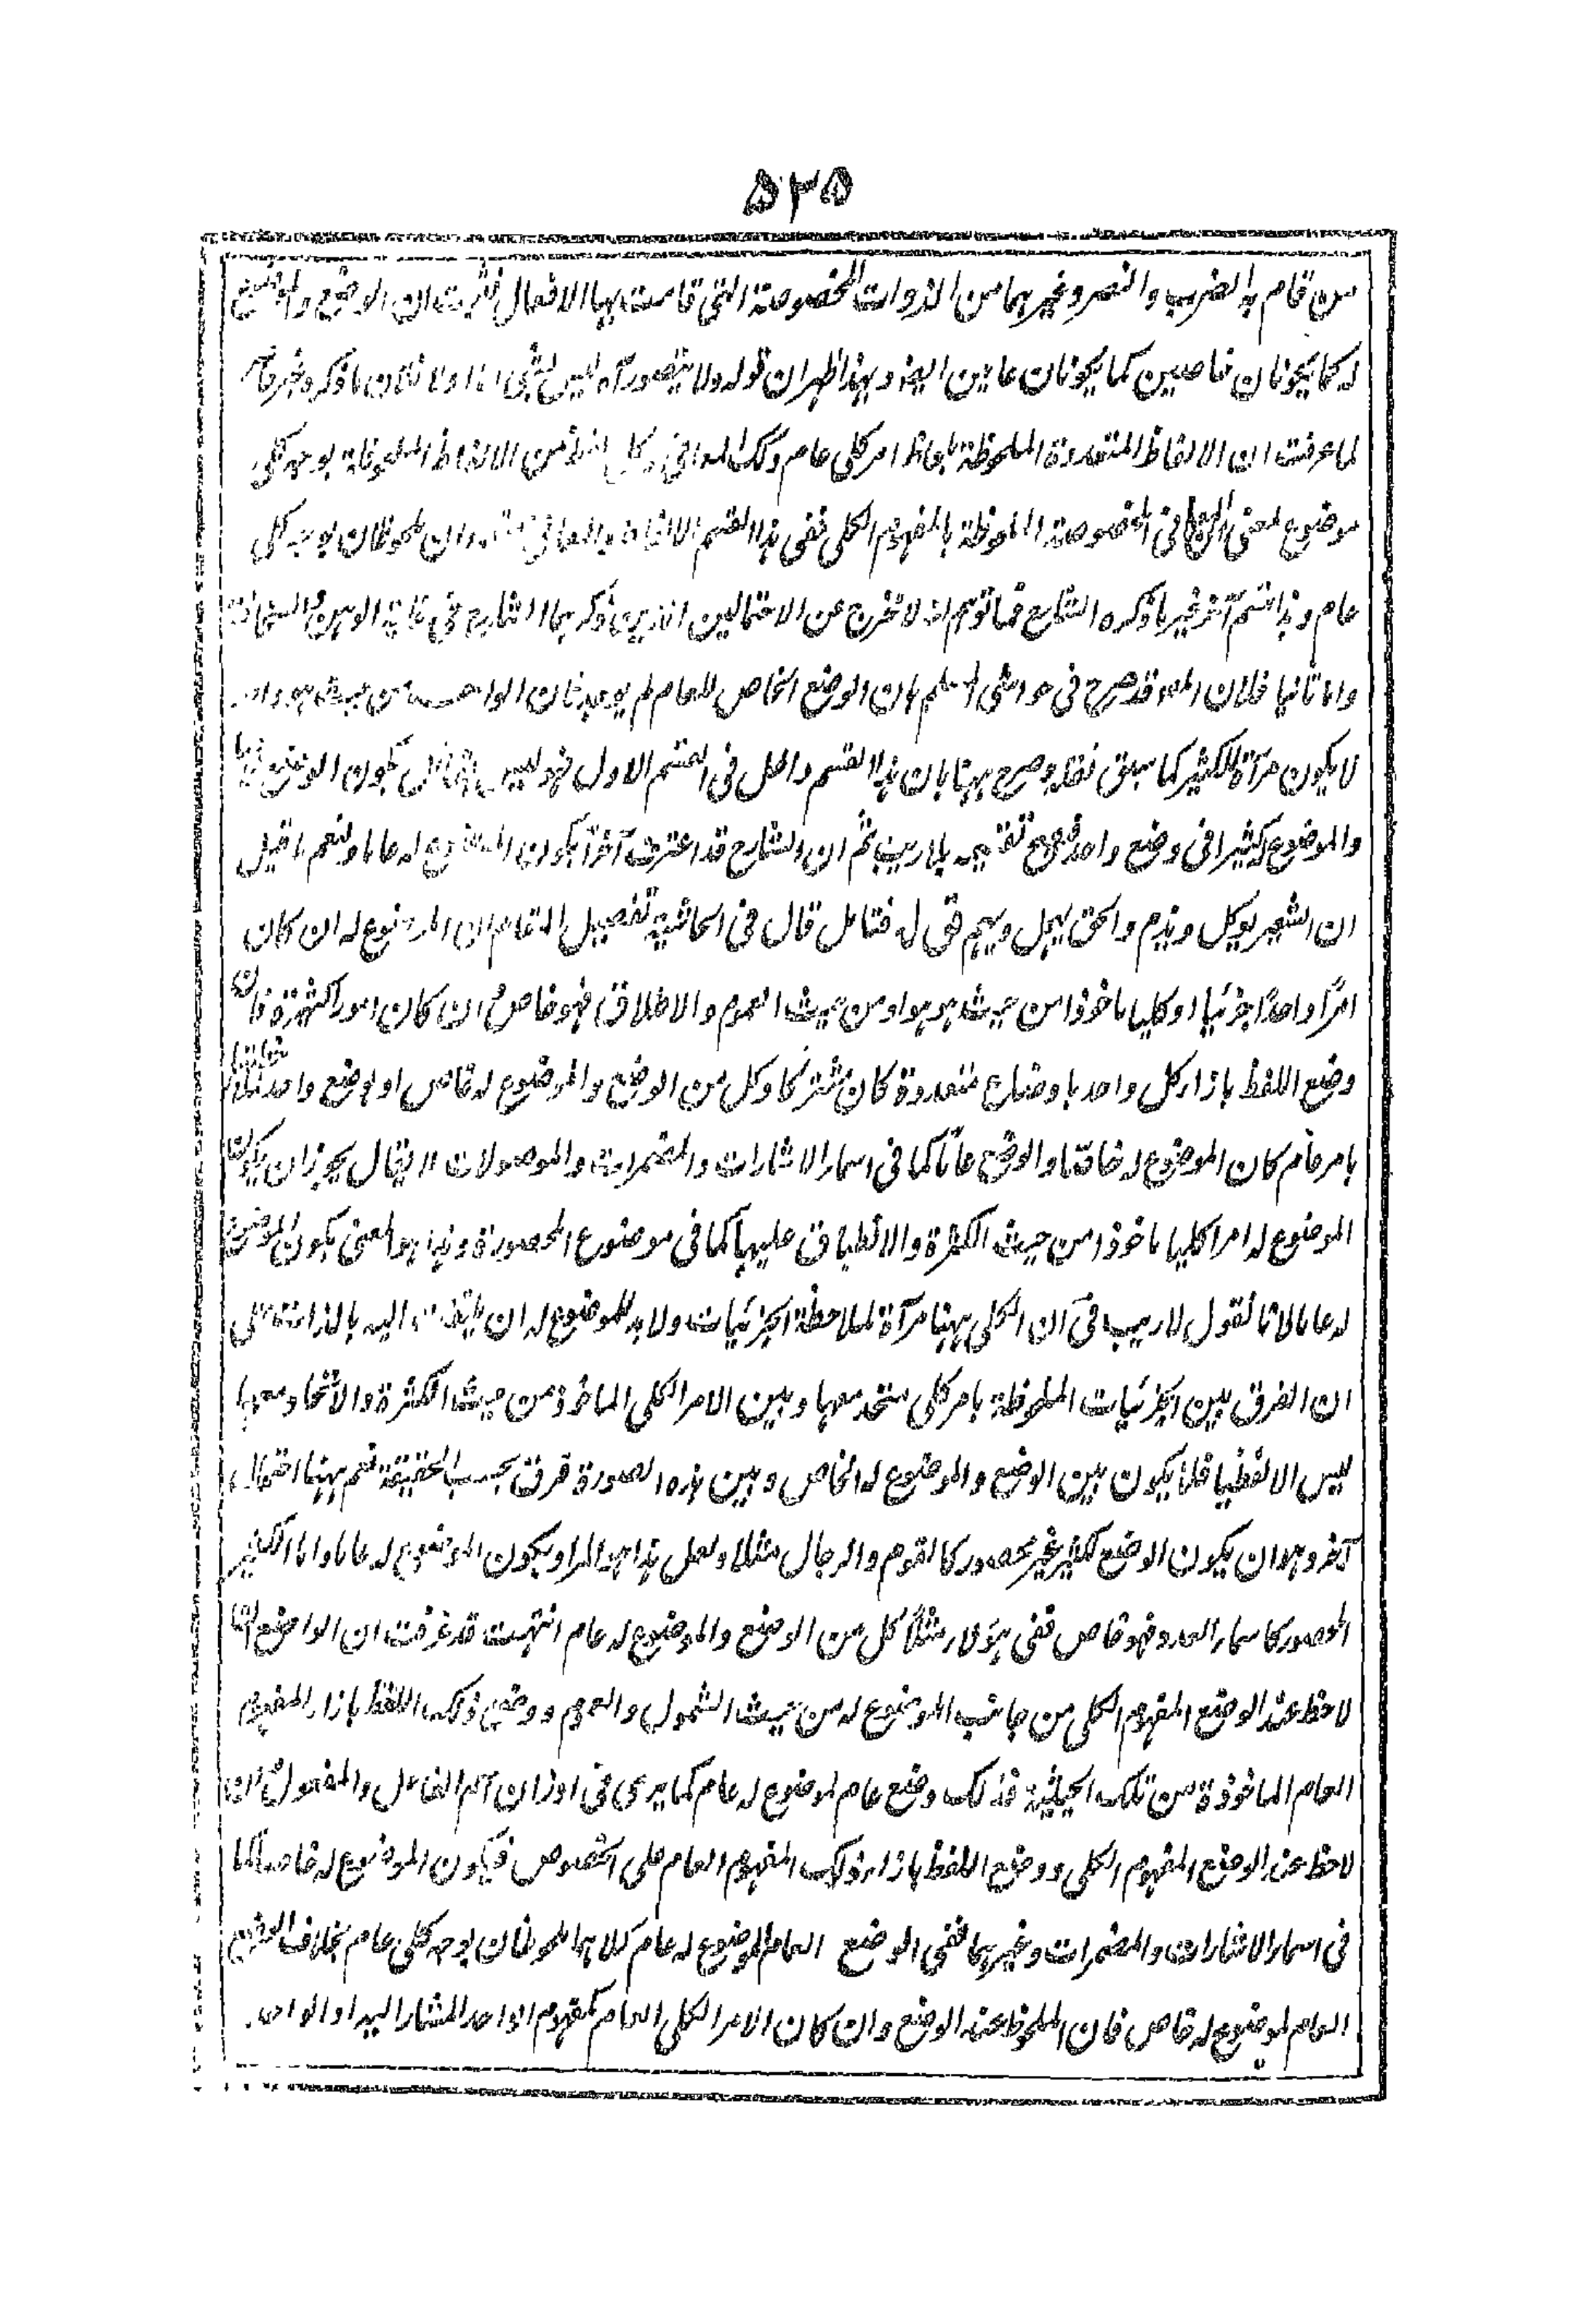 ۵۲۵
من قام به الضرب والنصر وغيرهما من الذوات المخصوصة التى قامت بها الافعال فثبت ان الوضع والموضوع
له كما يكونان خاصين كما يكونان عامين ايضا وبهذا ظهر ان قوله ولا يتصور آه ليس بشئ اما اولا فلان ما ذكره غير
لما عرفت ان الالفاظ المتعددة الملحوظة بلحاظ امر كلى عام وتلك المعانى كل لفظ من الالفاظ الملحوظة بوجه كلى
موضوع لمعنى المعانى المخصوصة الملحوظة بالمفهوم الكلى ففى هذا القسم الالفاظ والمعانى ملحوظان بوجه كلى
عام وهذا قسم آخر غير ما ذكره الشارح فما توهم انه لا تخرج عن الاحتمالين الذين ذكرهما الشارح فى غاية الوهن والسخافة
واما ثانيا فلان المصـ قد صرح فى حواشى السلم بان الوضع الخاص للعام لم يوجد فان الواحد من حيث هو واحد
لا يكون مرآة للكثير كما سبق نقله وصرح ههنا بان هذا القسم داخل فى القسم الاول فهو ليس بقائل بكون الوضع
والموضوع كثيرا فى وضع واحد فصح تقسيمه بلا ريب ثم ان الشارح قد اعترف آخرا بكون الموضوع له عاما ولنعم ما قيل
ان الشعير يوكل ويذم والحق يهمل ويهم قوله فتامل قال فى الحاشية تفصيل المقام ان الموضوع له ان كان
امرا واحدا جزئيا او كليا ماخوذا من حيث هو هو او من حيث العموم والاطلاق فهو خاص وان كان امورا كثيرة فان
وضع اللفظ بازاء كل واحد باوضاع متعددة كان مشتركا وكل من الوضع والموضوع له خاص او بوضع واحد
بامر عام كان الموضوع له خاصا والوضع عاما كما فى اسماء الاشارات والمضمرات والموصولات لا يقال يجوز ان يكون
الموضوع له امرا كليا ماخوذا من حيث الكثرة والانطباق عليها كما فى موضوع المحصورة وهذا هو المعنى بكون الموضوع
له عاما لانا نقول لا ريب فى ان الكلى ههنا مرآة لملاحظة الجزئيات ولا بد للموضوع له ان يلتفت اليه بالذات على
ان الفرق بين الجزئيات الملحوظة بامر كلى متحد معها وبين الامر الكلى الماخوذ من حيث الكثرة والاتحاد معها
ليس الا لفظيا فلا يكون بين الوضع والموضوع له الخاص وبين هذه الصورة فرق بحسب الحقيقة نعم ههنا احتمال
آخر وهو ان يكون الوضع لكثير غير محصور كالقوم والرجال مثلا ولعل هذا هو المراد بكون الموضوع له عاما واما الكثير
المحصور كاسماء العدد فهو خاص ففى هؤلاء مثلا كل من الوضع والموضوع له عام انتهت قد عرفت ان الواضع اذا
لاحظ عند الوضع المفهوم الكلى من جانب الموضوع له من حيث الشمول والعموم ووضع ذلك اللفظ بازاء المفهوم
العام الماخوذة من تلك الحيثية فذلك وضع عام لموضوع له عام كما يرى فى اوزان اسم الفاعل والمفعول وان
لاحظ عند الوضع المفهوم الكلى ووضع اللفظ بازاء ذلك المفهوم العام على الخصوص فيكون الموضوع له خاصا كما
فى اسماء الاشارات والمضمرات وغيرهما ففى الوضع العام الموضوع له عام كلاهما ملحوظان بوجه كلى عام بخلاف الوضع
العام لموضوع له خاص فان الملحوظ عند الوضع وان كان الامر الكلى العام كمفهوم الواحد المشار اليه او الواحد